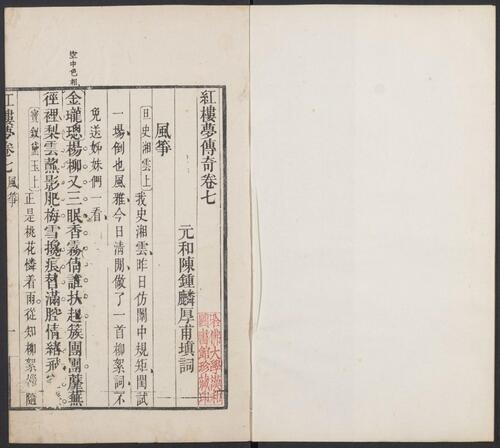 紅樓夢傳奇卷七
元和陳鍾麟厚甫塡詞
哈佛大學漢和
圖書館珍藏印
風箏
旦史湘雲上
我史湘雲昨日仿閨中規矩閨試
一塲倒也風雅今日清閒做了一首柳絮詞不
免送姊妹們一看
空中色相
金瓏璁楊柳又三眠香霧倩誰扶起簇團團蘼蕪
徑裡梨雲蕉影肥梅雪攙痕替滿腔情緒飛
寶釵黛玉上
正是桃花憐着雨從知柳絮隨
紅樓夢卷七
風箏
一